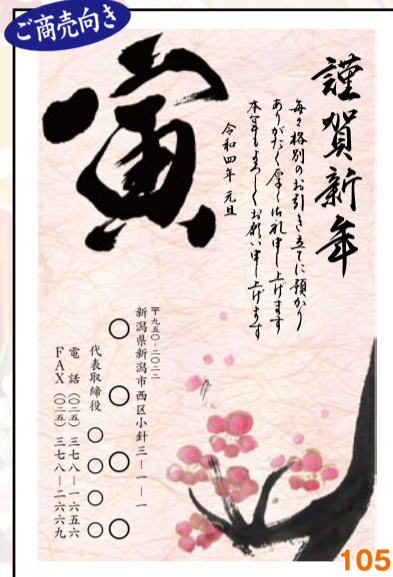 ご商売向き
謹賀新年
毎々格別のお引き立てに預かり
ありがたく厚く御礼申し上げます
本年もよろしくお願い申し上げます
令和四年 元旦
寅
〒九五〇-二〇二二
新潟県新潟市西区小針三-一-一
〇〇〇〇
代表取締役 〇〇〇〇
電話 (〇二五) 三七八-一六五六
FAX (〇二五) 三七八-二六六九
105